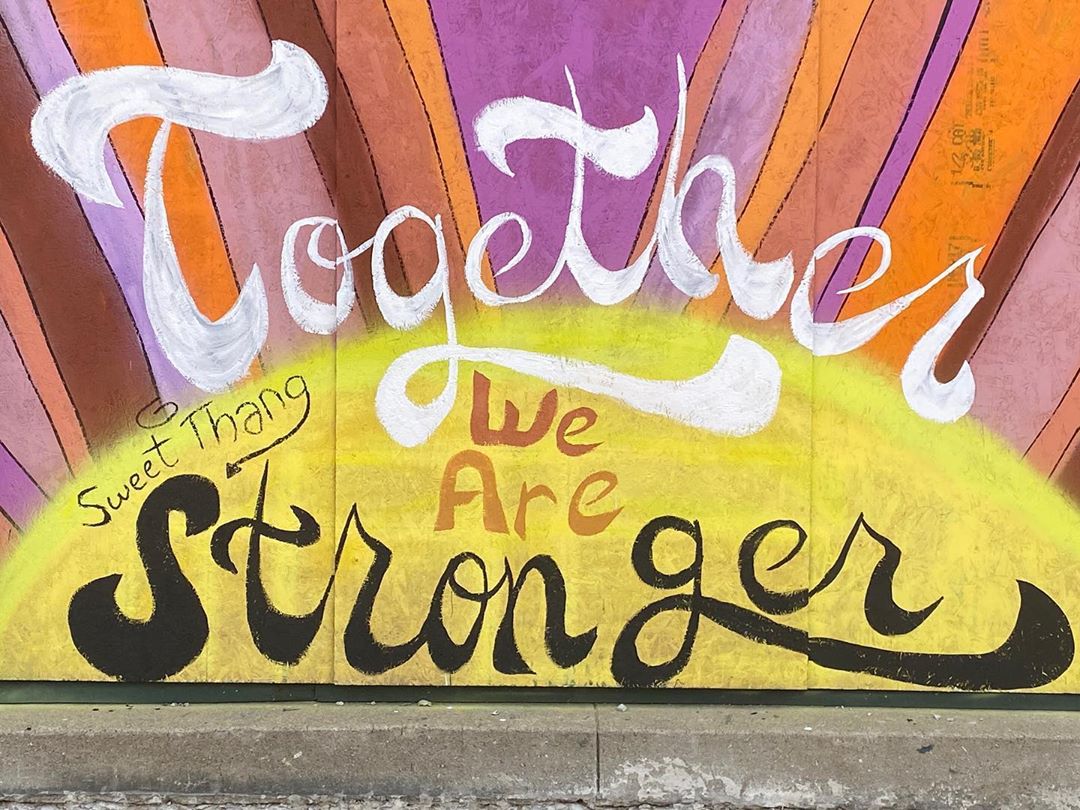 Together
We
Are
Stronger
Sweet Thang